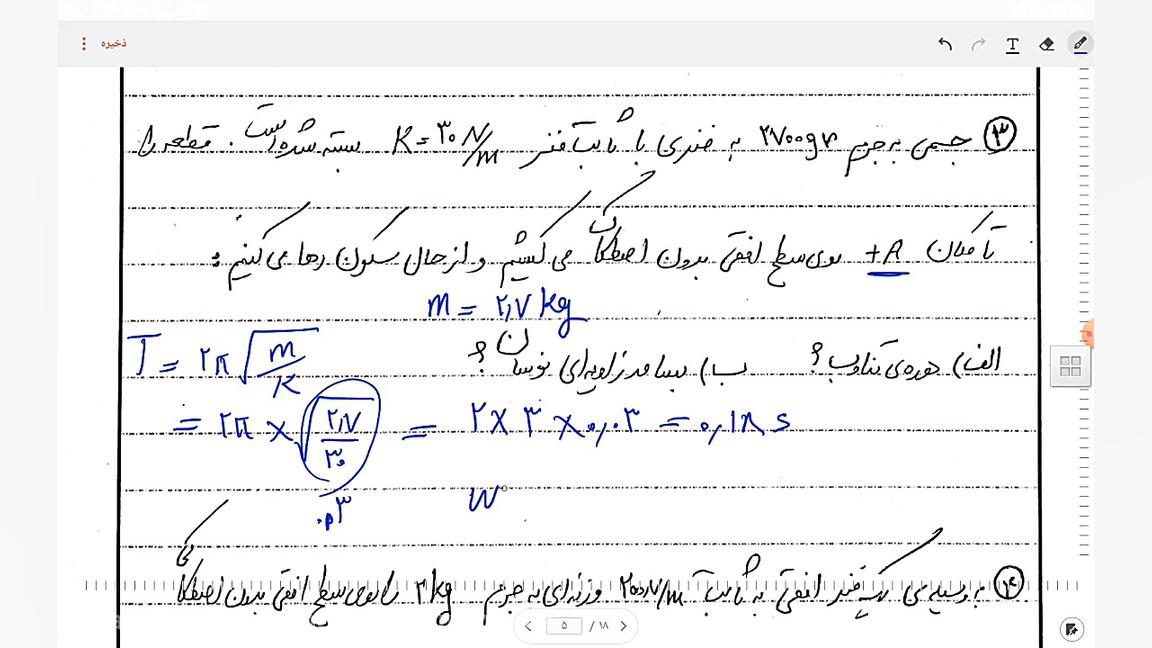 ذخیره
③ جسمی به جرم ۲۷۰۰gr به فنری با ثابت فنر K = ۳۰ N/m بسته شده است. قطعه را
تا مکان +A روی سطح افقی بدون اصطکاک می کشیم و از حال سکون رها می کنیم:
m = ۲٫۷ kg
الف) دوره ی تناوب؟ ب) بسامد زاویه ای نوسان؟
T = ۲π √(m/K)
= ۲π × √(۲٫۷/۳۰) = ۲ × ۳ × ۰٫۰۳ = ۰٫۱۸ s
۰٫۳
W
④ به وسیله ی یک فنر افقی به ثابت ۲۰۰N/m وزنه ای به جرم ۲kg را روی سطح افقی بدون اصطکاکی
۵ / ۱۸